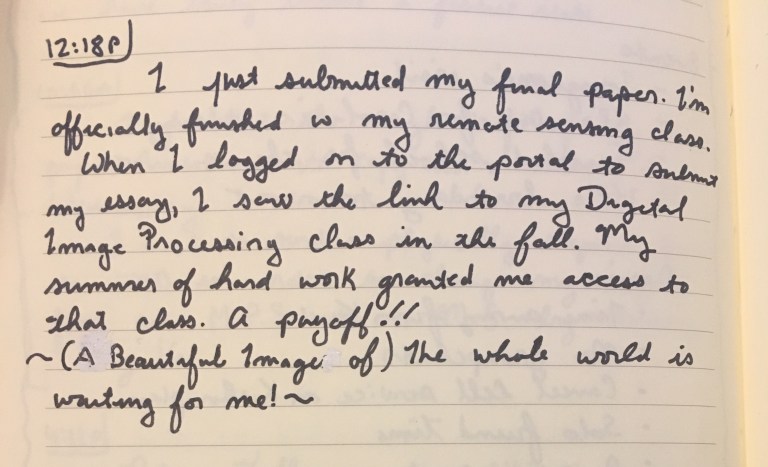 12:18P
I just submitted my final paper. I'm
officially finished w my remote sensing class.
When I logged on to the portal to submit
my essay, I saw the link to my Digital
Image Processing class in the fall. My
summer of hard work granted me access to
that class. A payoff!!!
~(A Beautiful Image of) The whole world is
waiting for me!~